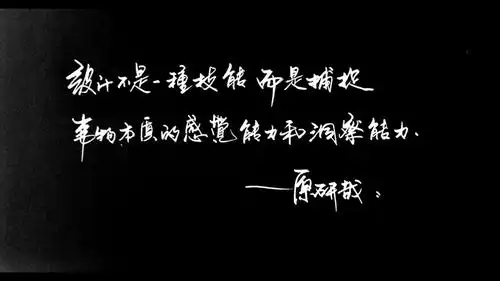 設计不是一種技能 而是捕捉
事物本质的感覺能力和洞察能力.
——原研哉。